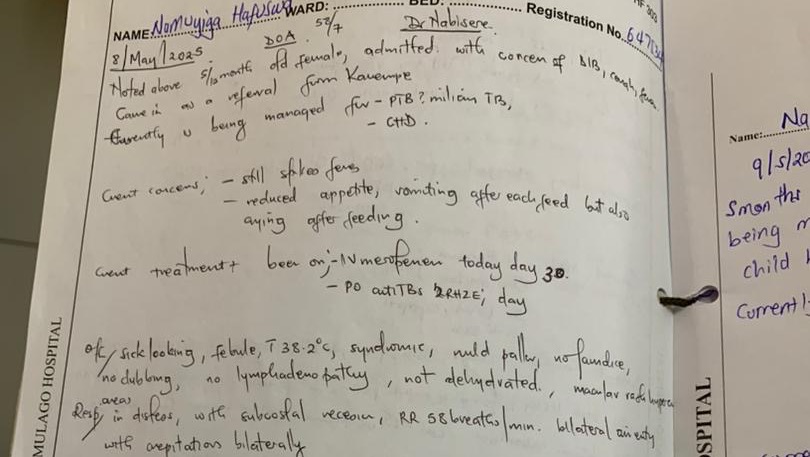 NAME: Nomuyiga Hafuswa WARD: BED:
Registration No. 647134
Dr Nabisere.
8/May/2025. DOA 52/7
Noted above 5/12 month old female, admitted with concern of DIB, cough, fever.
Came in as a referral from Kawempe
Currently is being managed for - PTB? miliary TB,
- CHD.
Current concerns; - still spikes fever
- reduced appetite, vomiting after each feed but also
crying after feeding.
Current treatment+ been on;- IV meropenem today day 30.
- PO antiTBs 2RHZE; day
O/E/ sick looking, febrile, T 38.2°C, syndromic, mild pallor, no jaundice,
no clubbing, no lymphadenopathy, not dehydrated., macular rash
areas
Resp/ in distress, with subcostal recession, RR 58 breaths/min. bilateral air entry
with crepitations bilaterally
MULAGO HOSPITAL
Na
Name:
9/5/20
5 months
being m
child
Currentl
SPITAL